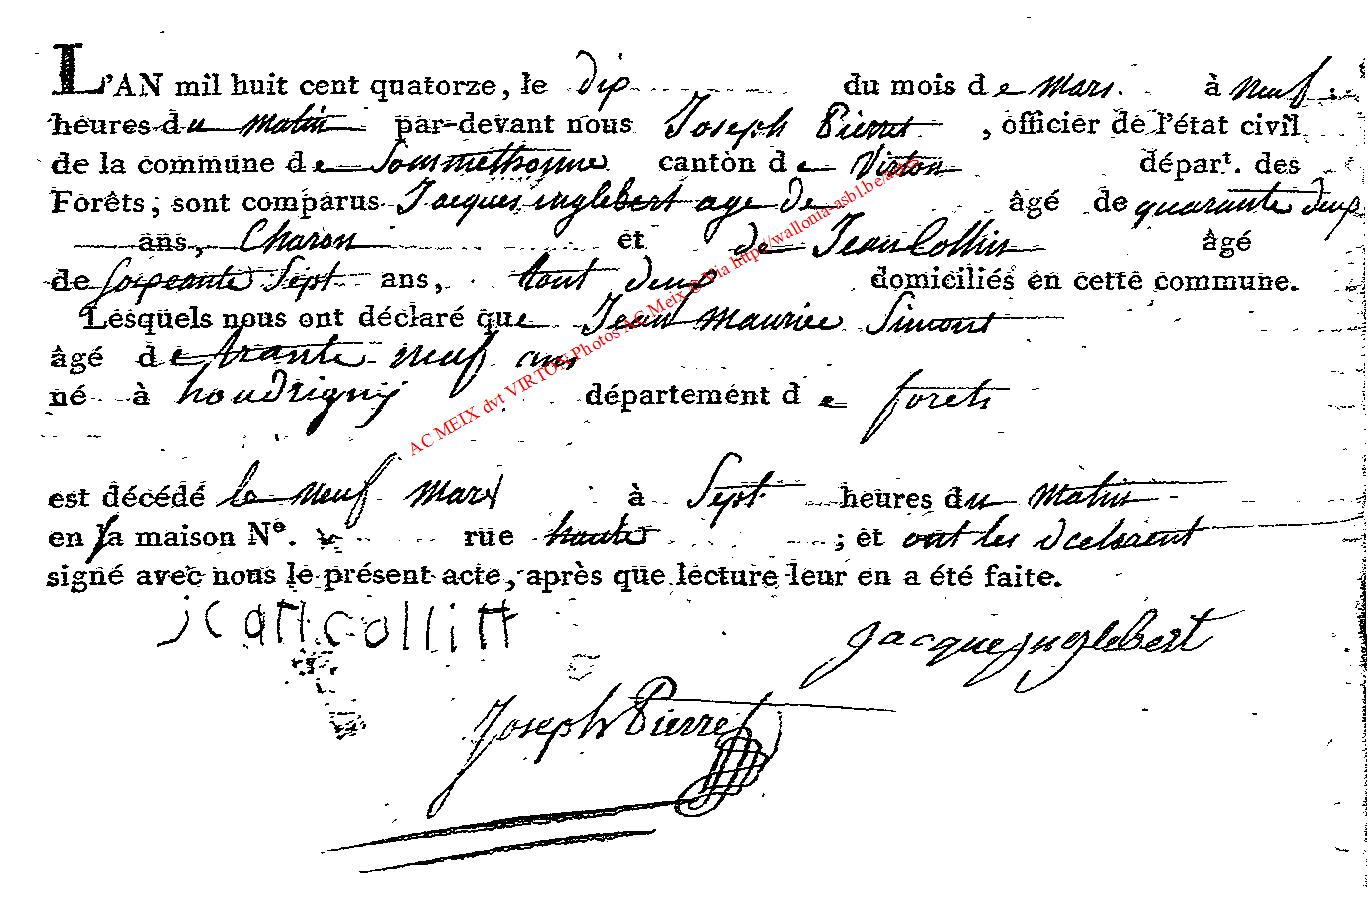 L'AN mil huit cent quatorze, le dix du mois de mars. à neuf
heures du matin par-devant nous Joseph Pierret, officier de l'état civil
de la commune de Sommethonne canton de Virton départ. des
Forêts, sont comparus Jacques inglebert age de âgé de quarante deux
ans, Charon et de Jean Collin âgé
de soixante Sept ans, tout deux domiciliés en cette commune.
Lesquels nous ont déclaré que Jean maurice Simont
âgé de trante neuf ans
né à houdrigny département de forets
est décédé le neuf mars à Sept heures du matin
en sa maison Nº. rue haute ; et ont les
signé avec nous le présent acte, après que lecture leur en a été faite.
jean collin
Jacque inglebert
Joseph Pierret
AC MEIX dvt VIRTON Photos AC Meix via http://wallonia-asbl.be/